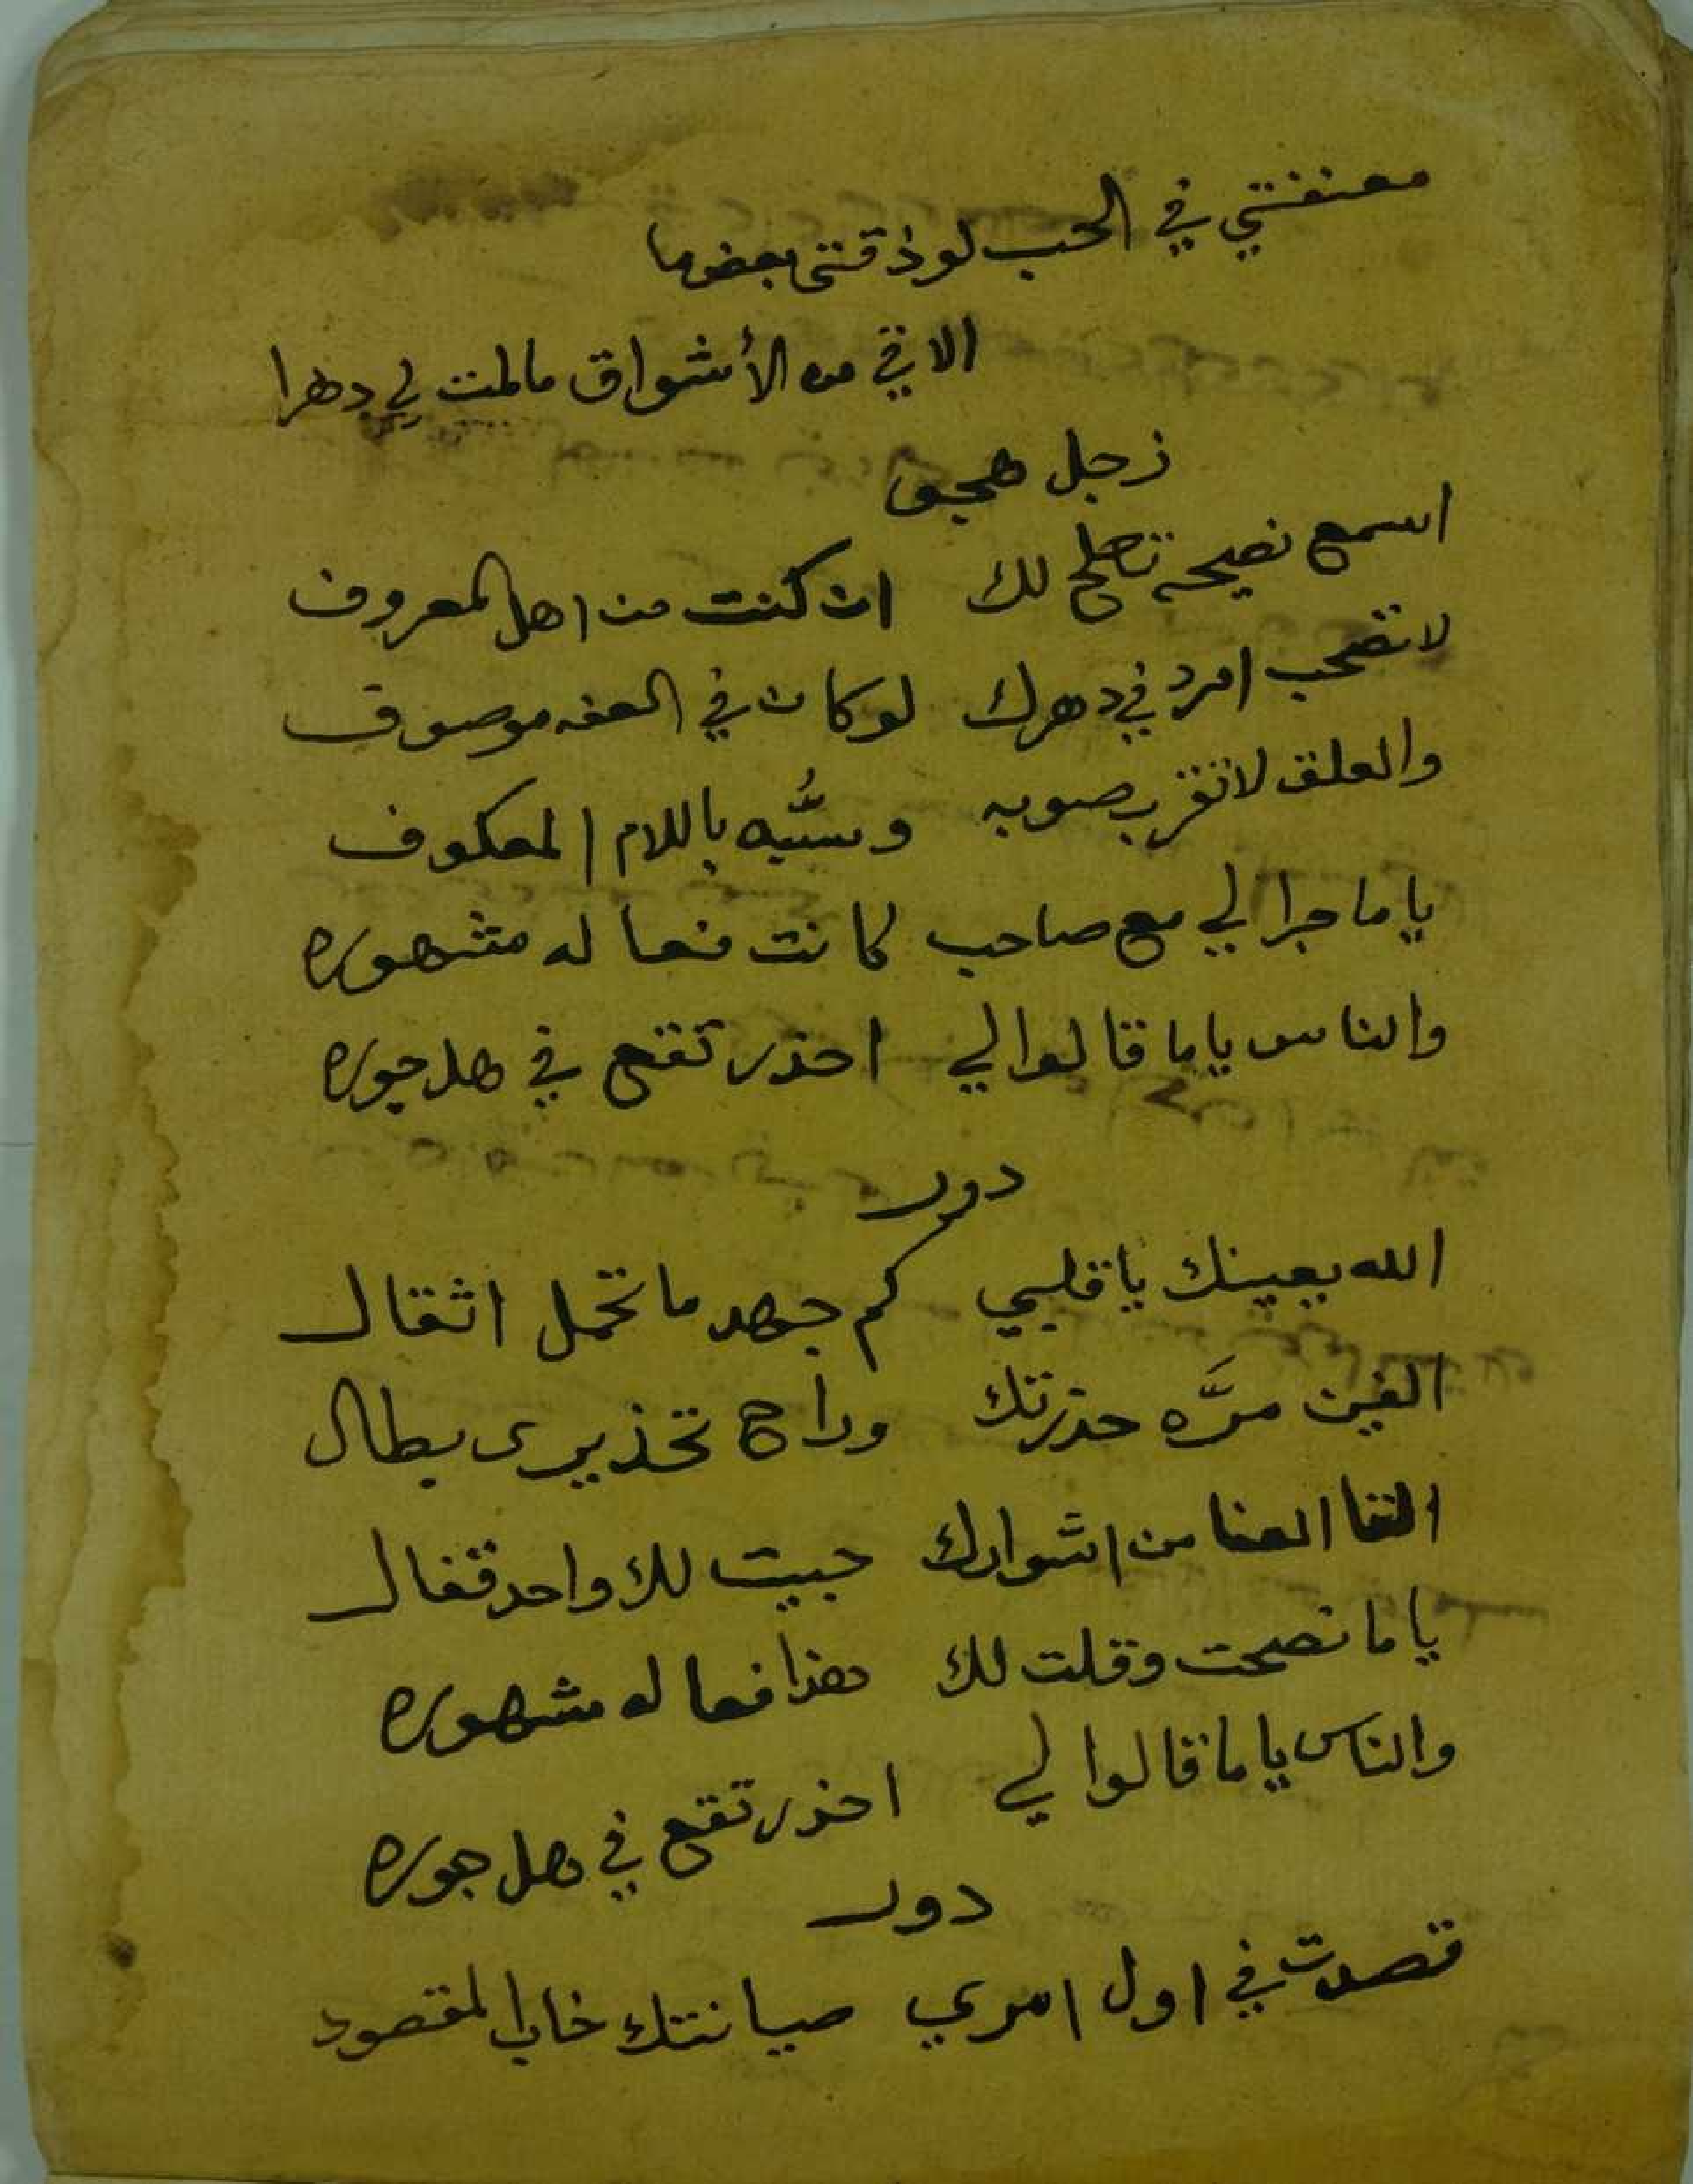 معنفتي في الحب لو ذقتي بعض ما
الاقي من الأشواق ما لمت لي دهرا
زجل
اسمع نصيحه تصلح لك ان كنت من اهل المعروف
لا تصحب امرد في دهرك لو كان في العفه موصوف
والعلق لا تقرب صوبه وسُّبه باللام المعكوف
ياما جرا لي مع صاحب كانت فعاله مشهوره
والناس ياما قالوا لي احذر تقع في هل جوره
دور
الله يعينك يا قلبي كم جهد ما تحمل اثقال
الفين مرَّه حذرتك وراح تحذيري بطال
القا العنا من اشوارك جبيت لك واحد قفال
ياما نصحت وقلت لك هذا فعاله مشهوره
والناس ياما قالوا لي احذر تقع في هل جوره
دور
قصدت في اول امري صيانتك خاب المقصود